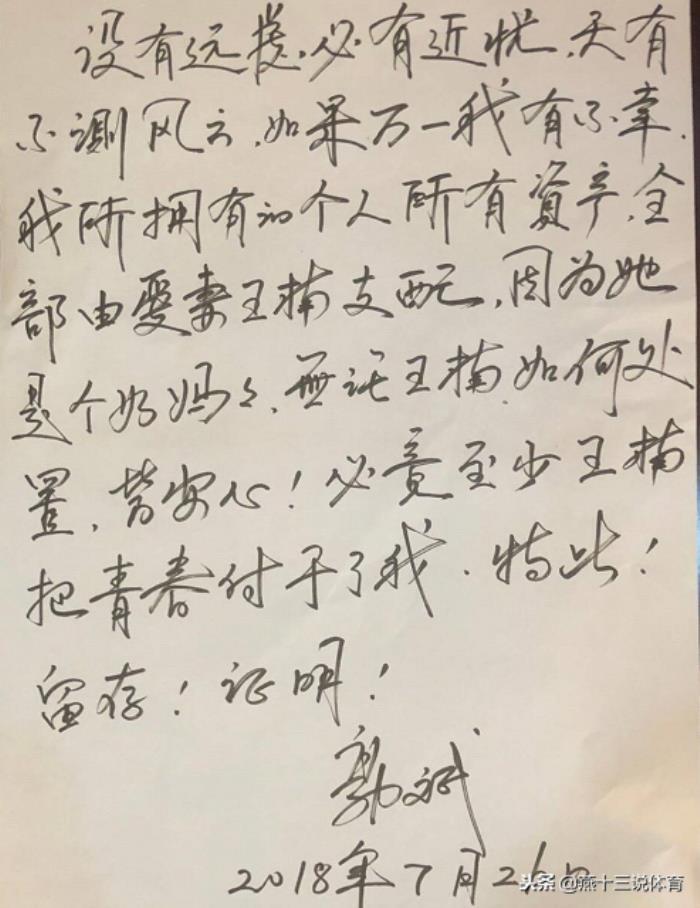 没有远虑.必有近忧.天有
不测风云.如果万一我有不幸.
我所拥有的个人所有資产.全
部由爱妻王楠支配,因为她
是个好妈々.無论王楠.如何处
置,皆安心!必竟至少王楠
把青春付于了我.特此!
留存!证明!
郭斌
2018年7月26日
头条@燕十三说体育